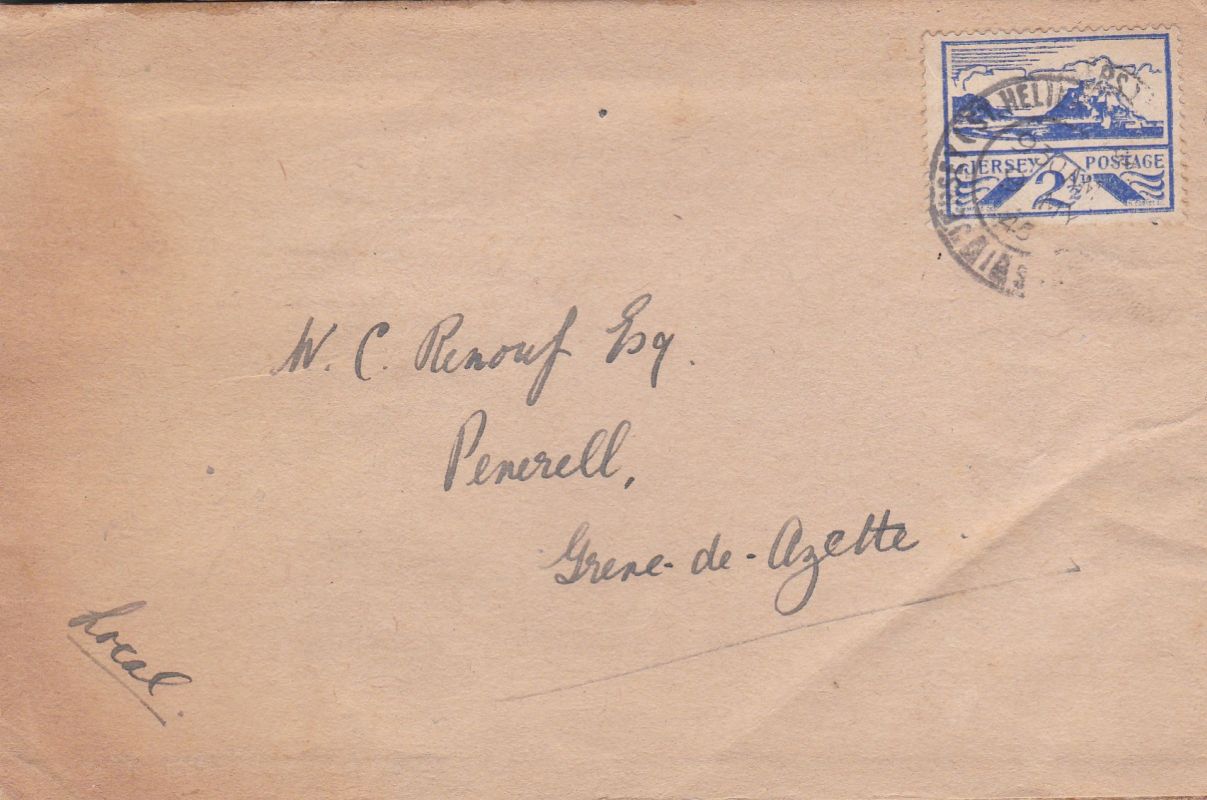 JERSEY POSTAGE
2½D
ST. HELIER
W. C. Renouf Esq.
Penerell,
Greve-de-Azette.
Local.